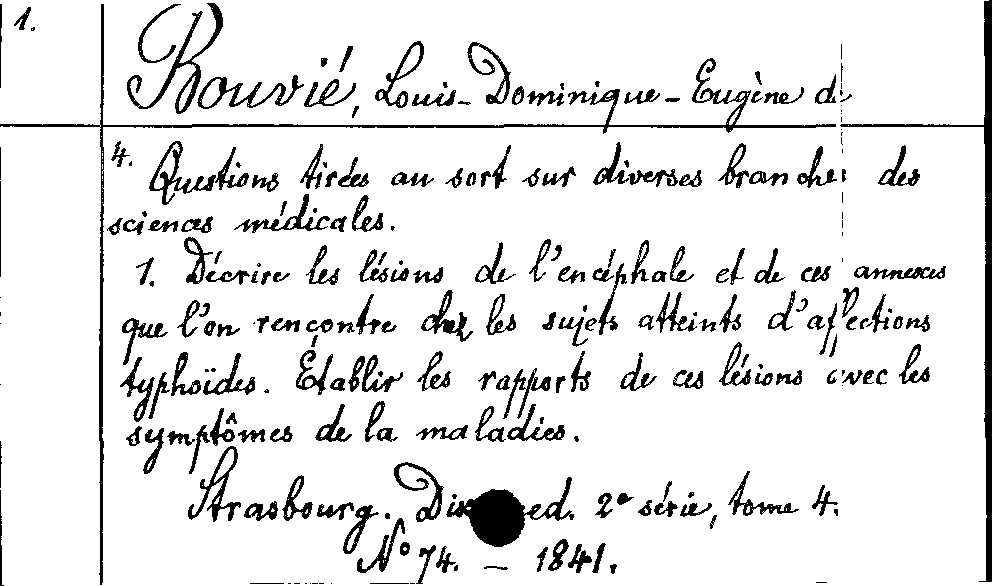 1.
Bouvié, Louis-Dominique-Eugène de
4. Questions tirées au sort sur diverses branches des
sciences médicales.
1. Décrire les lésions de l'encéphale et de ces annexes
que l'on rencontre chez les sujets atteints d'affections
typhoïdes. Établir les rapports de ces lésions avec les
symptômes de la maladies.
Strasbourg. Diss. ed. 2e série, tome 4.
No 74. — 1841.